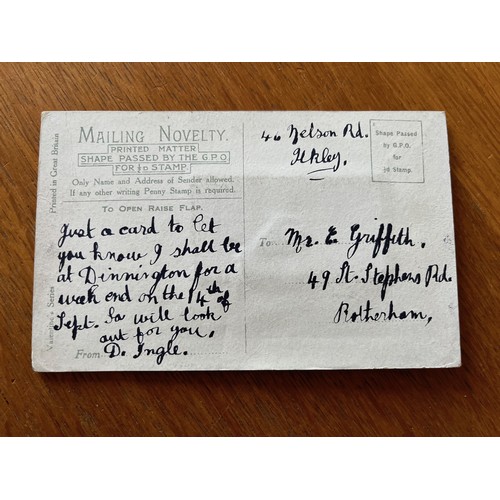 Printed in Great Britain
Series
MAILING NOVELTY.
PRINTED MATTER
SHAPE PASSED BY THE G.P.O
FOR ½D STAMP.
Only Name and Address of Sender allowed.
If any other writing Penny Stamp is required.
TO OPEN RAISE FLAP.
Just a card to let
you know I shall be
at Dinnington for a
week end on the 14th of
Sept. So will look
out for you.
From D. Ingle.
46 Nelson Rd.
Ilkley.
Shape Passed
by G.P.O.
for
½d Stamp.
To Mr. E. Griffith.
49 St. Stephens Rd.
Rotherham,